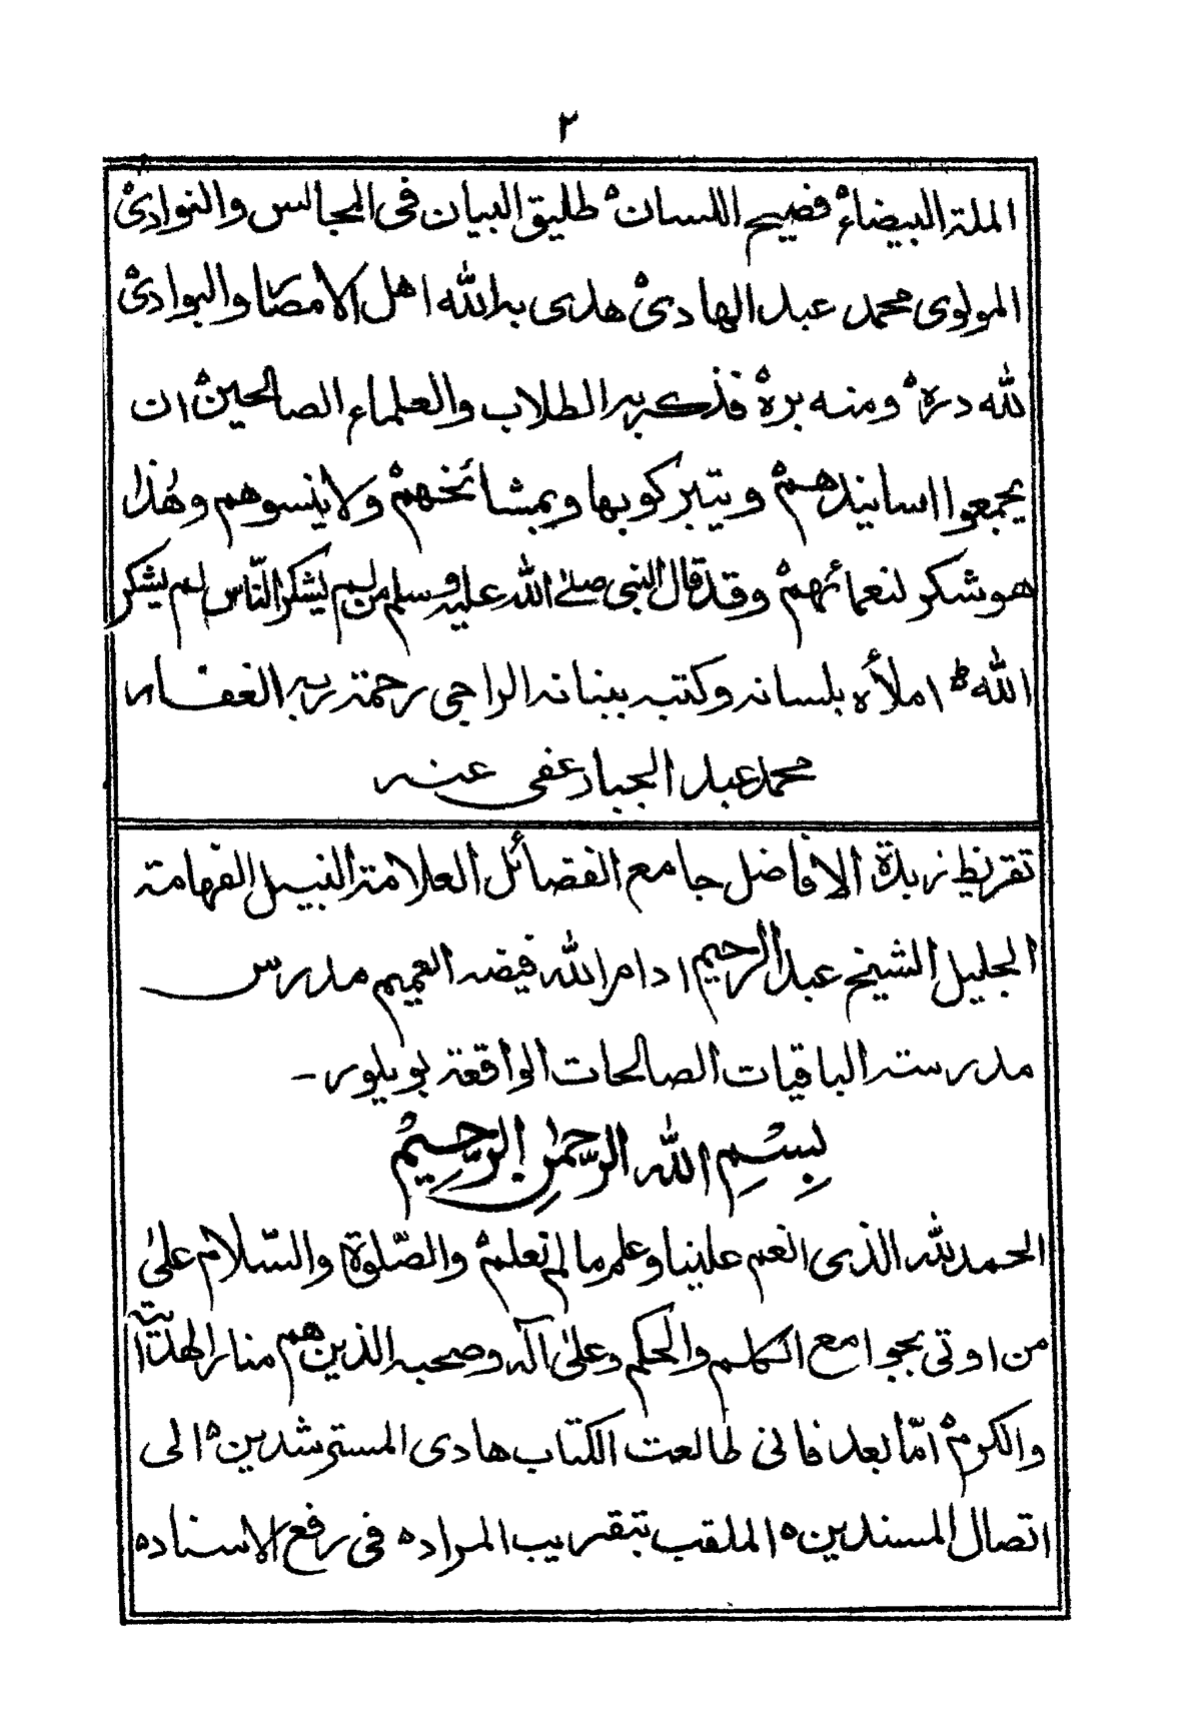 ٢
الملة البيضاءْ فصيح اللسانْ طليق البيان فى المجالس والنوادىْ
المولوى محمد عبد الهادىْ هدى به الله اهل الامصار والبوادىْ
لله درهْ ومنه برهْ فذكر به الطلاب والعلماء الصالحينْ ان
يجمعوا اسانيدهمْ ويتبركوبها وبمشائخهمْ ولا ينسوهم وهٰذا
هو شكر لنعمائهمْ وقد قال النبى صلى الله عليه وسلم من لم يشكر النّاس لم يشكر
الله ط املأه بلسانه وكتبه ببنانه الراجى رحمة ربه الغفار
محمد عبد الجبار عفى عنه
تقريظ زبدة الافاضل جامع الفضائل العلامة النبيل الفهامة
الجليل الشيخ عبد الرحيم ادام الله فيضه العميم مدرس
مدرسة الباقيات الصالحات الواقعة بويلور -
بِسْمِ الله الرَّحمٰنِ الرَّحِيْمِ
الحمد لله الذى انعم علينا وعلم ما لم نعلمْ والصّلوة والسّلام علىٰ
من اوتى بجوامع الكلم والحكم وعلىٰ آله وصحبه الذين هم منار الهداية
والكرمْ امّا بعد فانى طالعت الكتاب هادى المسترشدينْ الى
اتصال المسندين ه الملقب بتقريب المراد ه فى رفع الاسناد ه